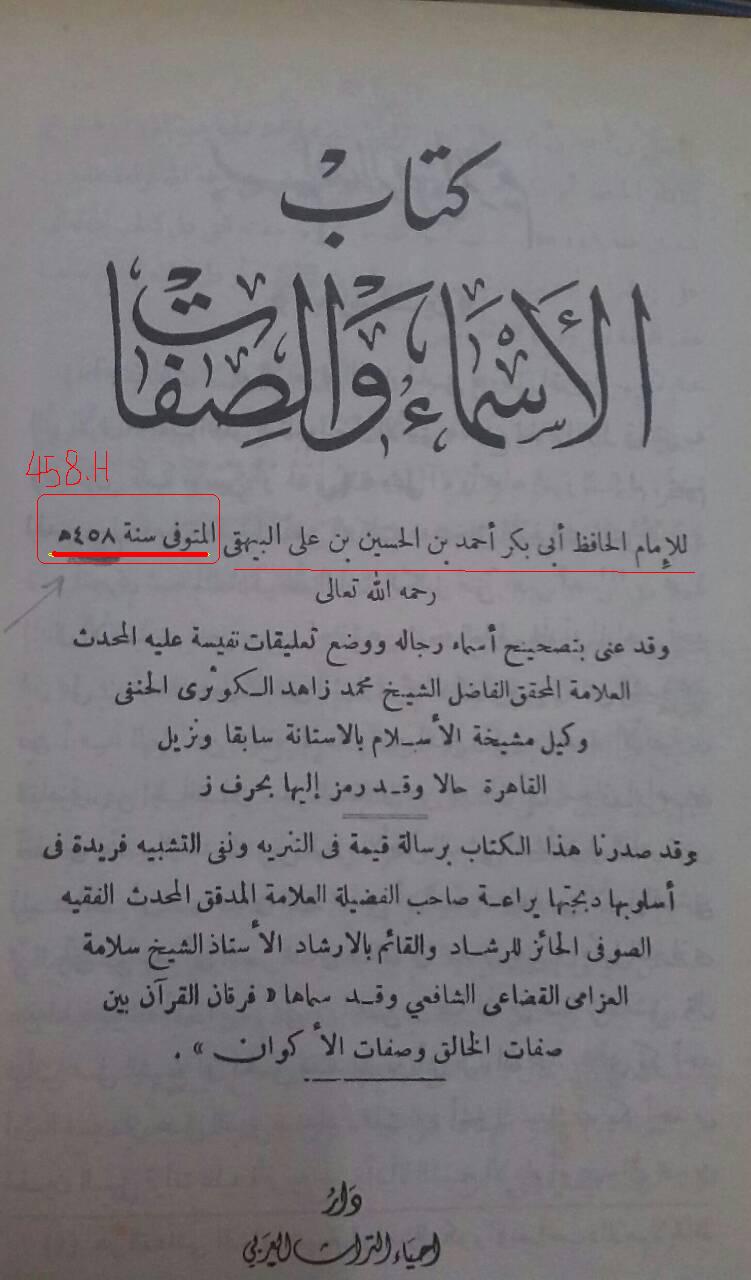 كتاب
الأسماء والصفات
458.H
للإمام الحافظ أبى بكر أحمد بن الحسين بن على البيهقى المتوفى سنة ٤٥٨ھ
رحمه الله تعالى
وقد عنى بتصحيح أسماء رجاله ووضع تعليقات نفيسة عليه المحدث
العلامة المحقق الفاضل الشيخ محمد زاهد الكوثرى الحنفى
وكيل مشيخة الأسلام بالاستانة سابقا ونزيل
القاهرة حالا وقد رمز إليها بحرف ز
وقد صدرنا هذا الكتاب برسالة قيمة فى التنزيه ونفى التشبيه فريدة فى
أسلوبها دبجتها يراعة صاحب الفضيلة العلامة المدقق المحدث الفقيه
الصوفى الحائز للرشاد والقائم بالارشاد الأستاذ الشيخ سلامة
العزامى القضاعى الشافعي وقد سماها « فرقان القرآن بين
صفات الخالق وصفات الأكوان » .
دار
احياء التراث العربي